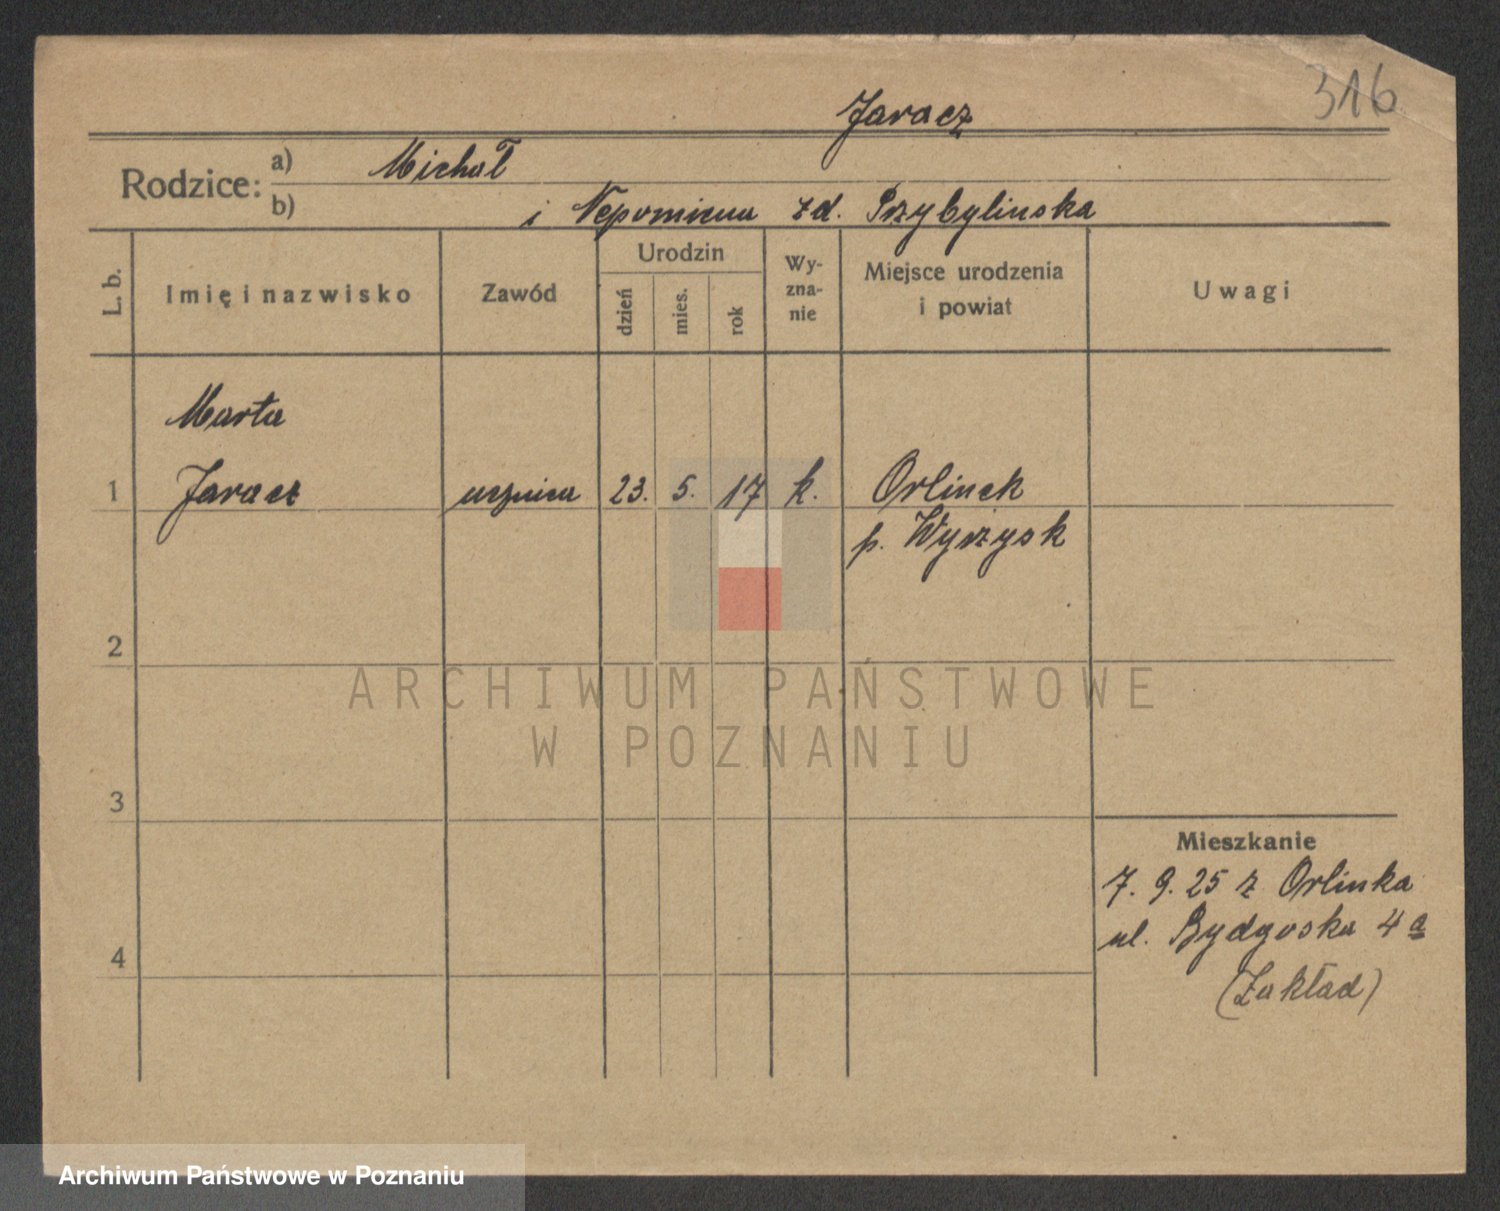 316
Jaracz
Rodzice:
a) Michał
b) i Nepomucna zd. Przybylinska
L. b.
Imię i nazwisko
Zawód
Urodzin
dzień
mies.
rok
Wy-
zna-
nie
Miejsce urodzenia
i powiat
Uwagi
Marta
1 Jaracz ucznica 23. 5. 17 k. Orlinek
p. Wyrzysk
2
3
4
Mieszkanie
7. 9. 25 z Orlinka
ul. Bydgoska 4a
(Zakład)
ARCHIWUM PAŃSTWOWE
W POZNANIU
Archiwum Państwowe w Poznaniu